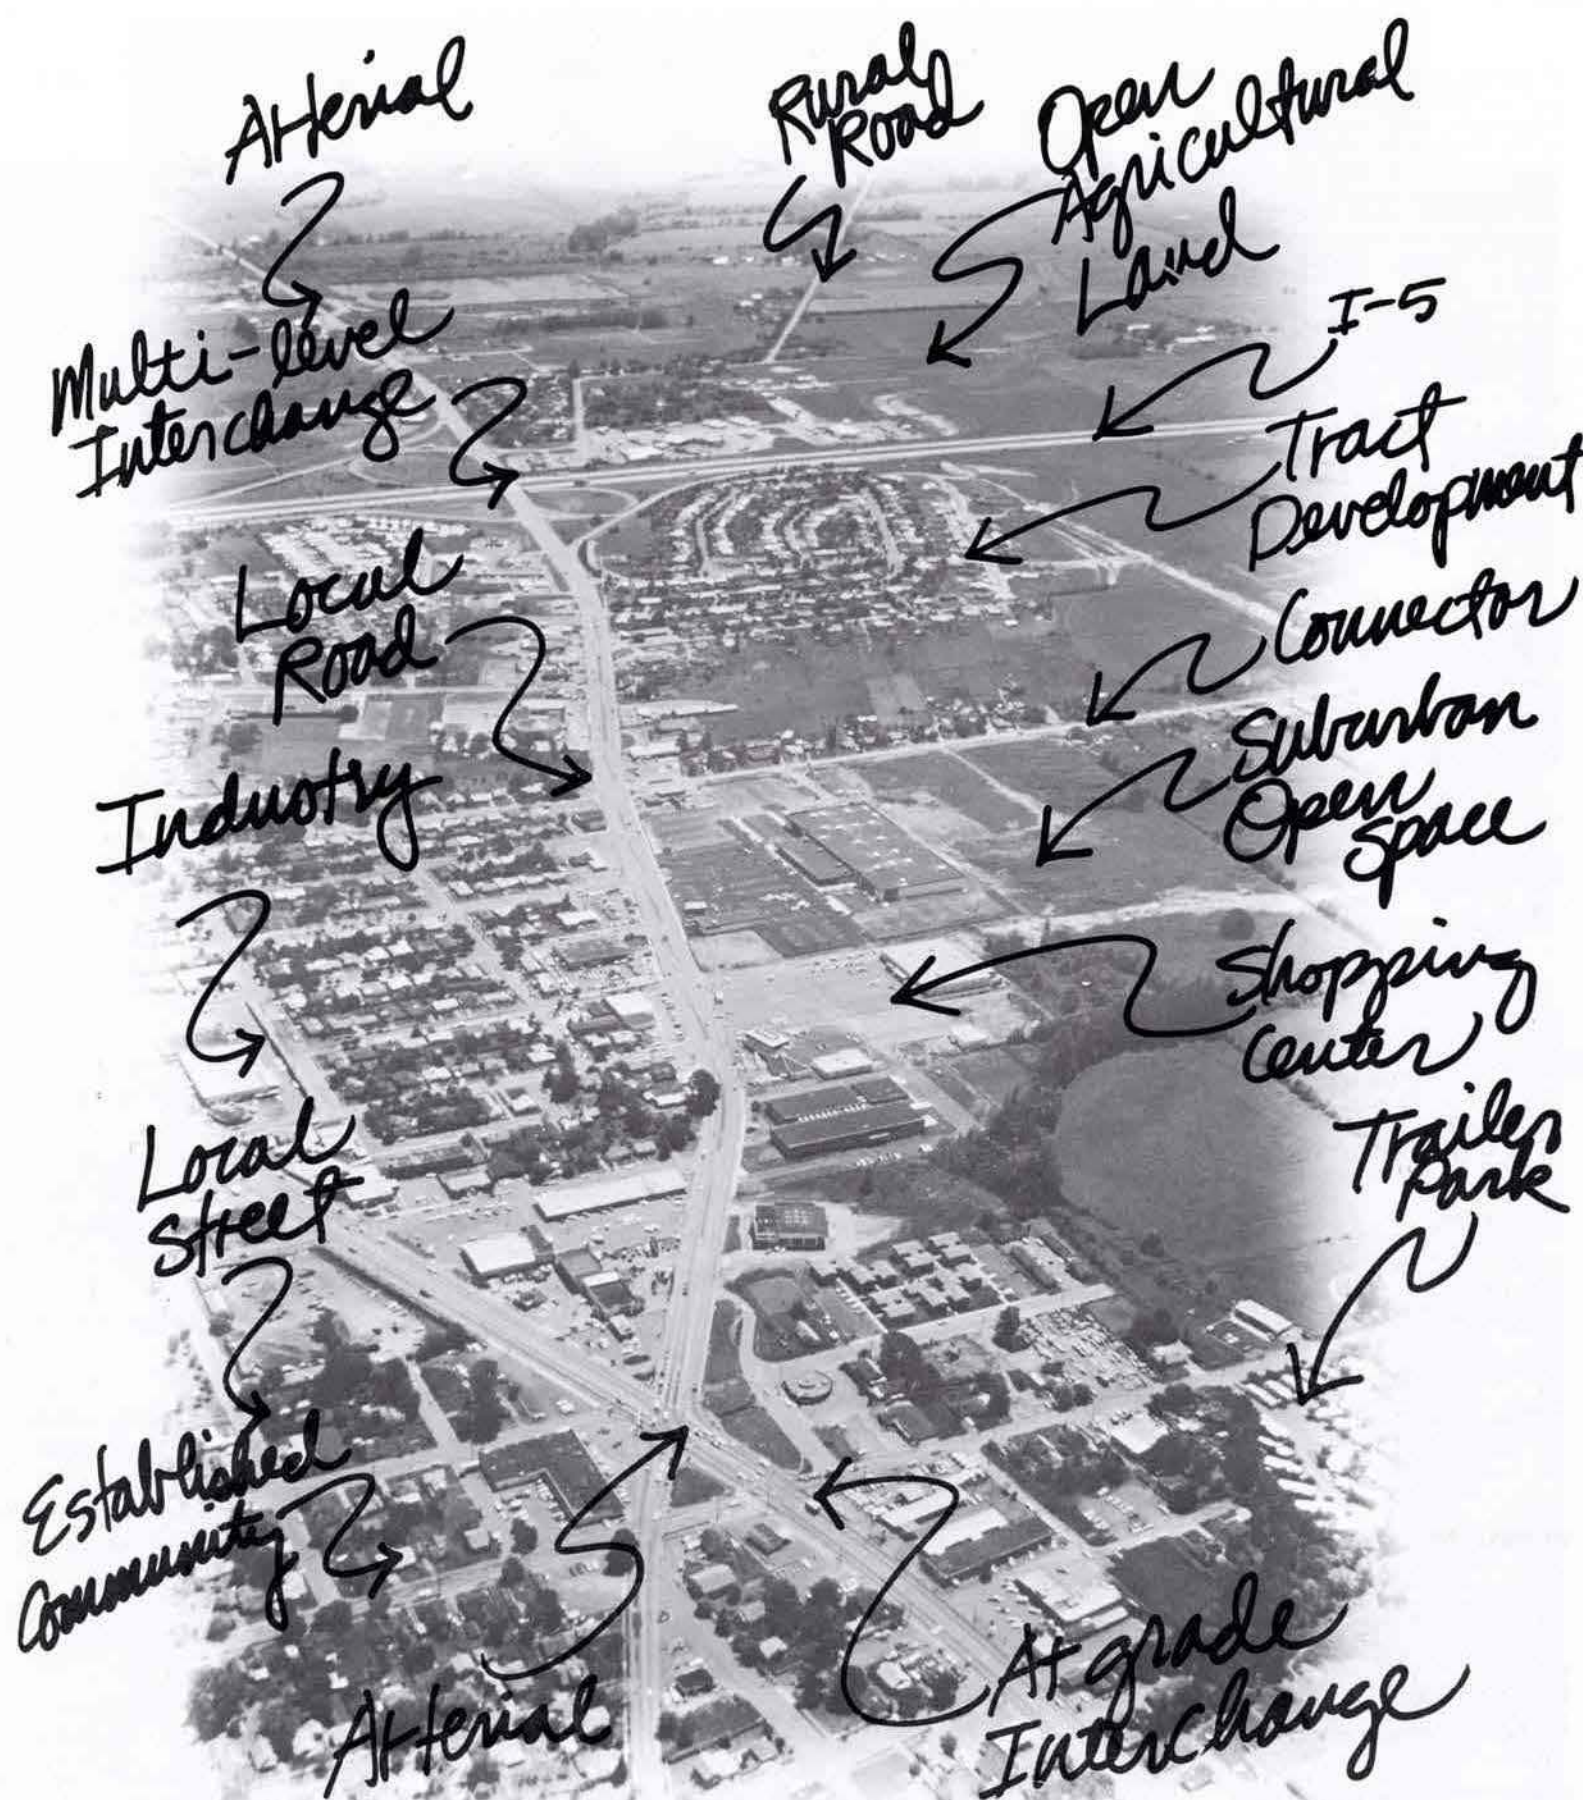 Arterial
Rural
Road
Open
Agricultural
Land
I-5
Multi-level
Interchange
Tract
Development
Local
Road
Connector
Suburban
Open
Space
Industry
Shopping
Center
Trailer
Park
Local
Street
Established
Community
Arterial
At grade
Interchange